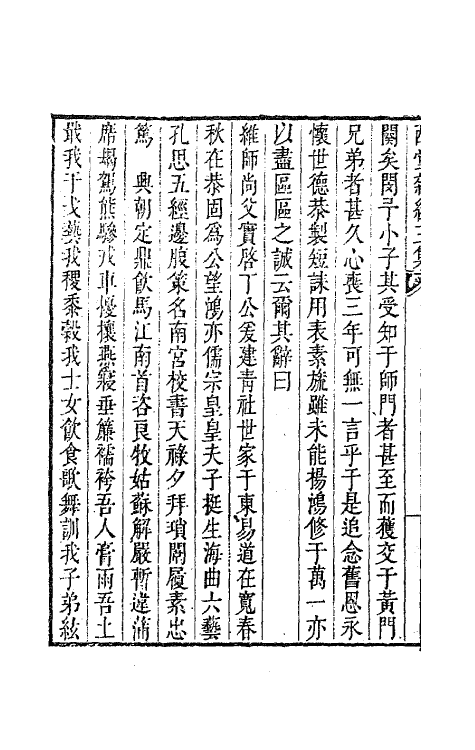 西堂雜組三集 卷
闕矣閔予小子其受知于師門者甚至而獲交于黃門
兄弟者甚久心喪三年可無一言乎于是追念舊恩永
懷世德恭製短誄用表素旒雖未能揚鴻修于萬一亦
以盡區區之誠云爾其辭曰
維師尚父實啓丁公爰建青社世家于東易道在寬春
秋在恭固爲公望鴻亦儒宗皇皇夫子挺生海曲六藝
孔思五經邊腹策名南宮校書天祿夕拜瑣闈履素忠
篤 興朝定鼎飲馬江南首咨良牧姑蘇解嚴暫違蒲
席朅駕熊驂戎車擾攘燕寢垂簾襦袴吾人膏雨吾土
戢我干戈蓺我稷黍穀我士女飲食歌舞訓我子弟絃